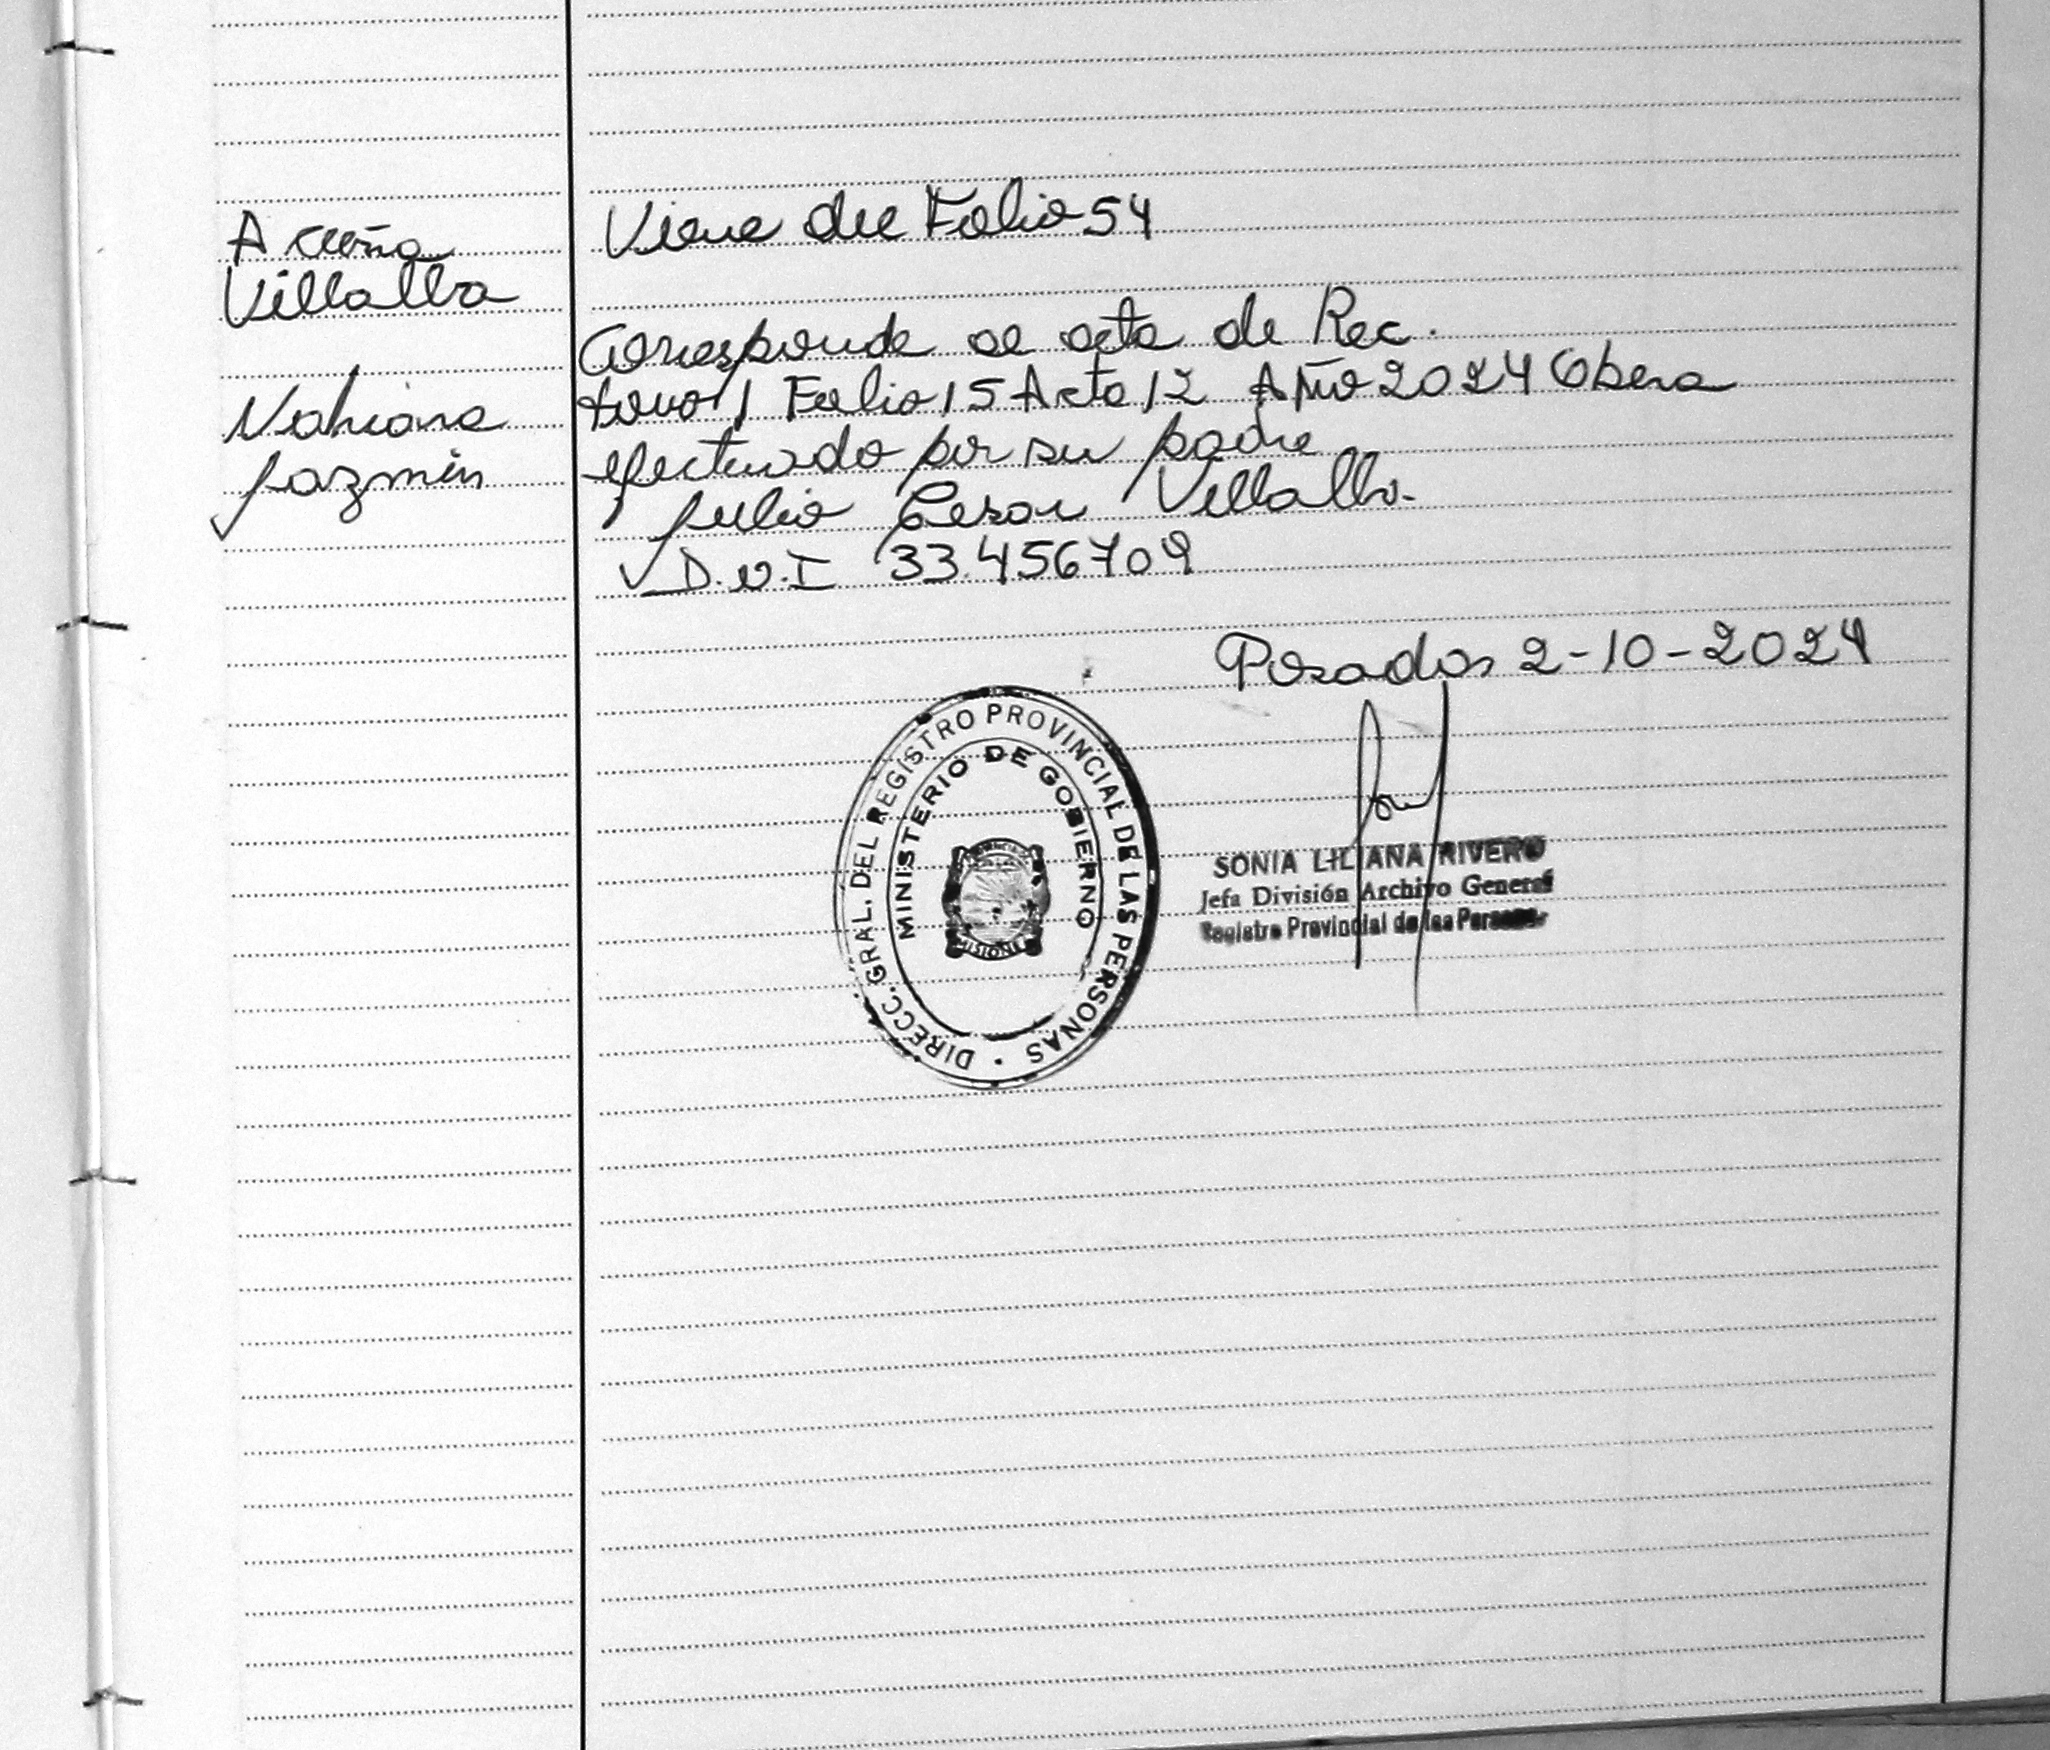 Acuña
Villalba
Nahiara
Jazmin
Viene del Folio 54
Corresponde al acta de Rec.
tomo 1 Folio 15 Acta 12 Año 2024 Obera
efectuado por su padre
Julio Cesar Villalba.
D.N.I 33.456709
Posadas 2-10-2024
DIRECC. GRAL. DEL REGISTRO PROVINCIAL DE LAS PERSONAS
MINISTERIO DE GOBIERNO
PROVINCIA DE
MISIONES
SONIA LILIANA RIVERO
Jefa División Archivo General
Registro Provincial de las Personas